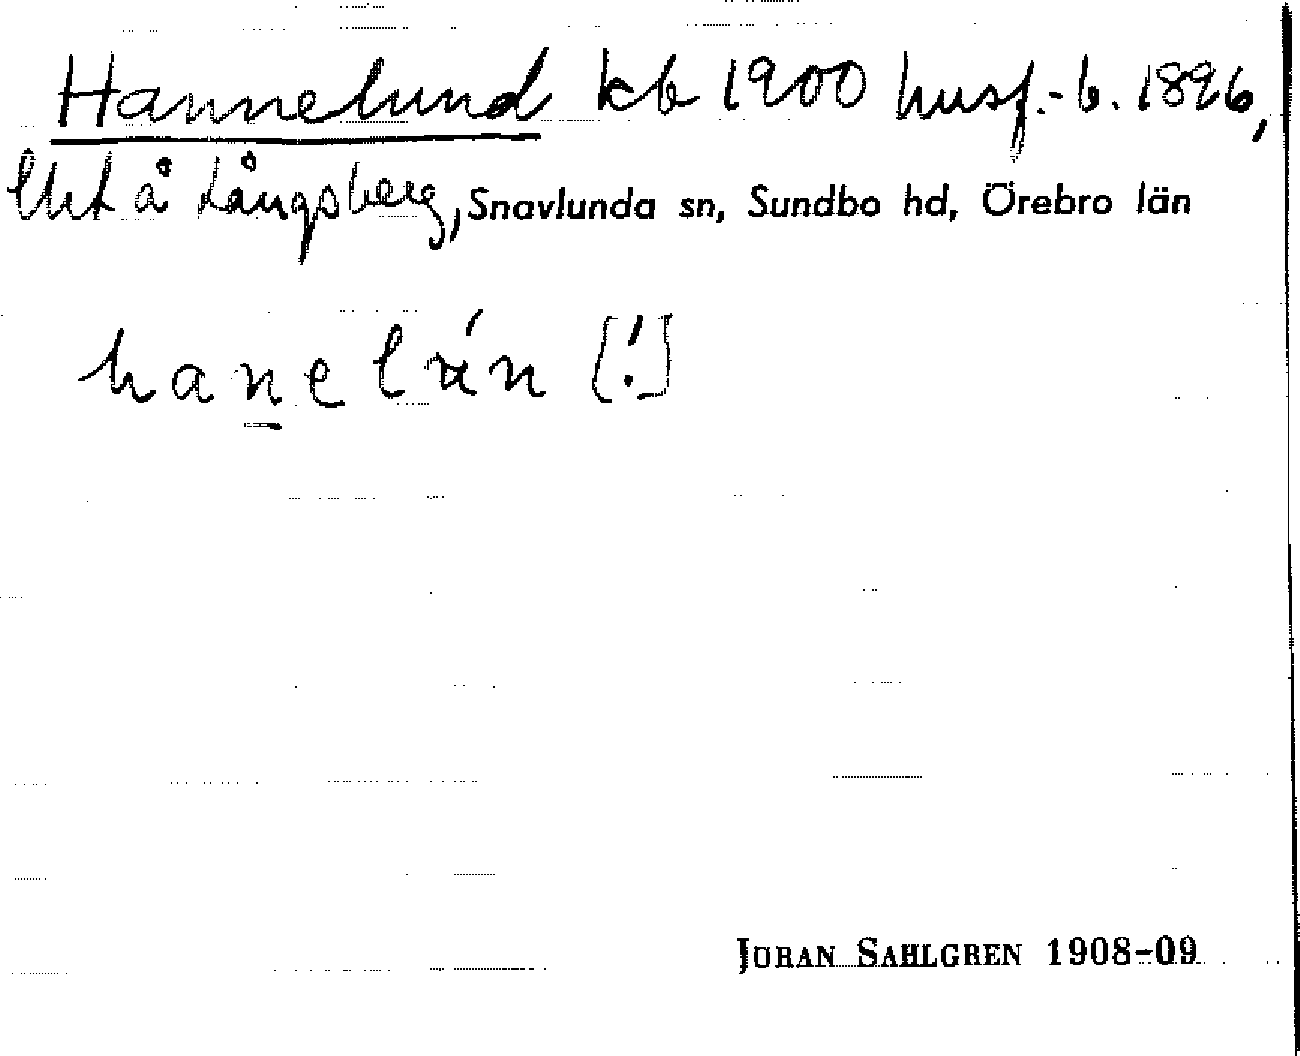 Hannelund kb 1900 husf.-b. 1896,
lht å Långsberg, Snavlunda sn, Sundbo hd, Örebro län
hanelún [!]
JÖRAN SAHLGREN 1908-09